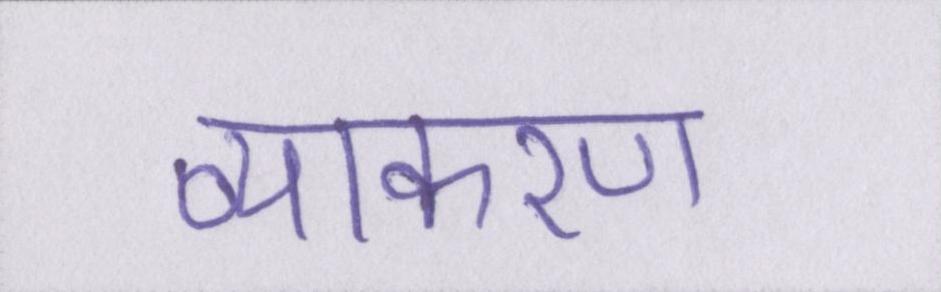 व्याकरण